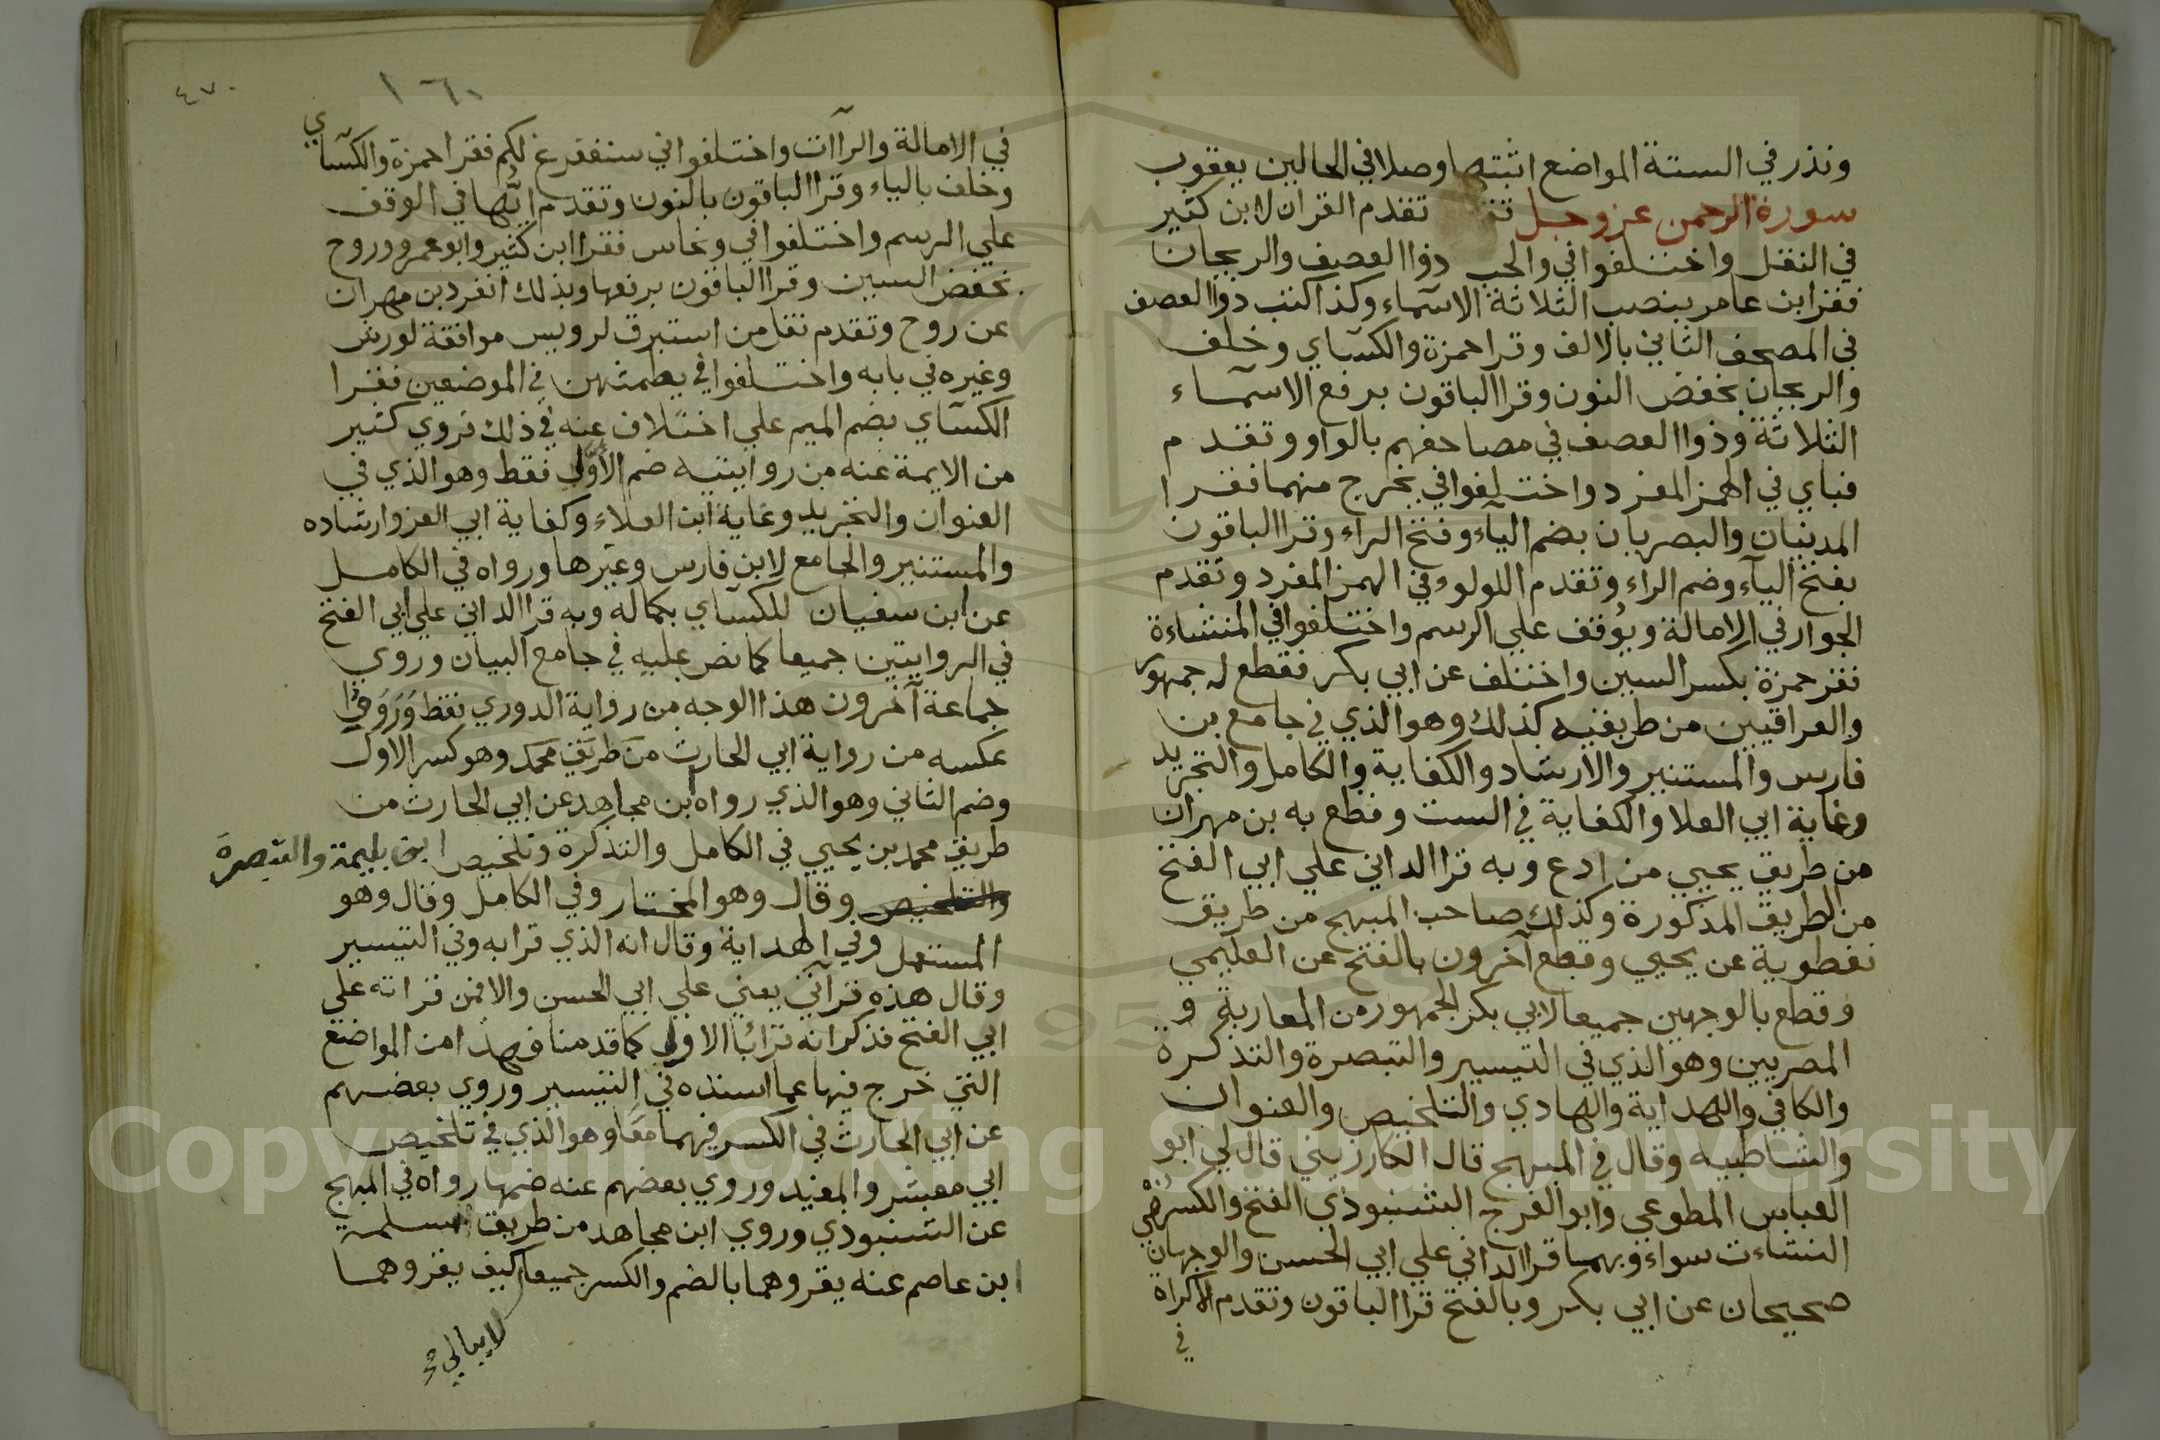 ونذر في الستة المواضع اثبتها وصلا في الحالين يعقوب
سورة الرحمن عز وجل تقدم القران لابن كثير
في النقل واختلفوا في والحب ذوا العصف والريحان
فقرا ابن عامر بنصب الثلاثة الاسماء وكذا كتب ذوا العصف
في المصحف الثاني بالالف وقرا حمزة والكسآي وخلف
والريحان بخفض النون وقرا الباقون برفع الاسماء
الثلاثة وذوا العصف في مصاحفهم بالواو وتقدم
فباي في الهمز المفرد واختلفوا في يخرج منهما فقرا
المدنيان والبصريان بضم اليآء وفتح الراء وقرا الباقون
بفتح اليآء وضم الراء وتقدم اللولو في الهمز المفرد وتقدم
الجوار في الامالة ويوقف علي الرسم واختلفوا في المنشاءة
فقر حمزة بكسر السين واختلف عن ابي بكر فقطع له جمهور
والعراقيين من طريقيه كذلك وهو الذي في جامع بن
فارس والمستنير والارشاد والكفاية والكامل والتجريد
وغاية ابي العلا والكفاية في الست وقطع به بن مهران
من طريق يحيي من ادع وبه قرا الداني علي ابي الفتح
من الطريق المذكورة وكذلك صاحب المبهج من طريق
نفطوية عن يحيي وقطع آخرون بالفتح عن العليمي
وقطع بالوجهين جميعا لابي بكر الجمهور من المعاربة و
المصريين وهو الذي في التيسير والتبصرة والتذكرة
والكافي والهداية والهادي والتلخيص والعنوان
والشاطبيه وقال في المبهج قال الكارزيني قال لي ابو
العباس المطوعي وابو الفرج الشنبوذي الفتح والكسر في
النشاءت سواء وبهما قرا الداني علي ابي الحسن والوجهان
صحيحان عن ابي بكر وبالفتح قرا الباقون وتقدم الاكراه
في
٤٧٠
١٦١
في الامالة والرآات واختلفوا في سنفرغ لكم فقرا حمزة والكسآي
وخلف بالياء وقرا الباقون بالنون وتقدم ايها في الوقف
علي الرسم واختلفوا في ونحاس فقرا ابن كثير وابو عمرو وروح
بخفض السين وقرا الباقون برفعها وبذلك انفرد بن مهران
عن روح وتقدم نقل من استبرق لرويس موافقة لورش
وغيره في بابه واختلفوا في يطمثهن في الموضعين فقرا
الكسآي بضم الميم علي اختلاف عنه في ذلك فروي كثير
من الايمة عنه من روايتيه ضم الاولي فقط وهو الذي في
العنوان والتجريد وغاية ابن العلاء وكفاية ابي العز وارشاده
والمستنير والجامع لابن فارس وغيرها ورواه في الكامل
عن ابن سفيان للكسآي بكماله وبه قرا الداني علي ابي الفتح
في الروايتين جميعا كما نص عليه في جامع البيان وروي
جماعة آخرون هذا الوجه من رواية الدوري فقط وروي
عكسه من رواية ابي الحارث من طريق محمد وهو كسر الاول
وضم الثاني وهو الذي رواه ابن مجاهد عن ابي الحارث من
طريق محمد بن يحيي في الكامل والتذكرة وتلخيص ابن بليمة والتبصرة
والتلخيص وقال وهو المختار وفي الكامل وقال وهو
المستعمل وفي الهداية وقال انه الذي قرا به وفي التيسير
وقال هذه قرآتي يعني علي ابي الحسن والا فمن قراته علي
ابي الفتح فذكر انه قرا الاولي كما قدمنا فهذا من المواضع
التي خرج فيها عما اسنده في التيسير وروي بعضهم
عن ابي الحارث في الكسر فيهما معا وهو الذي في تلخيص
ابي معشر والمفيد وروي بعضهم عنه ضمها رواه في المبهج
عن الشنبوذي وروي ابن مجاهد من طريق سلمة
ابن عاصم عنه يقروهما بالضم والكسر جميعا كيف يقروهما
لا يبالي